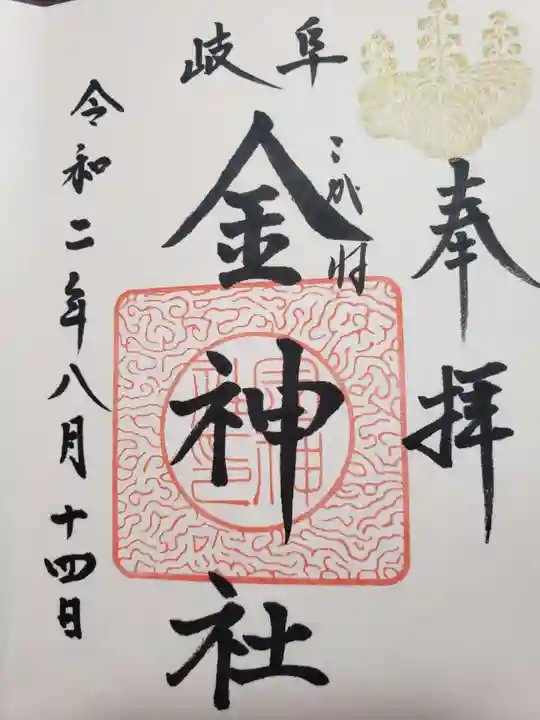 奉拝
岐阜
金神社
こがね
令和二年八月十四日